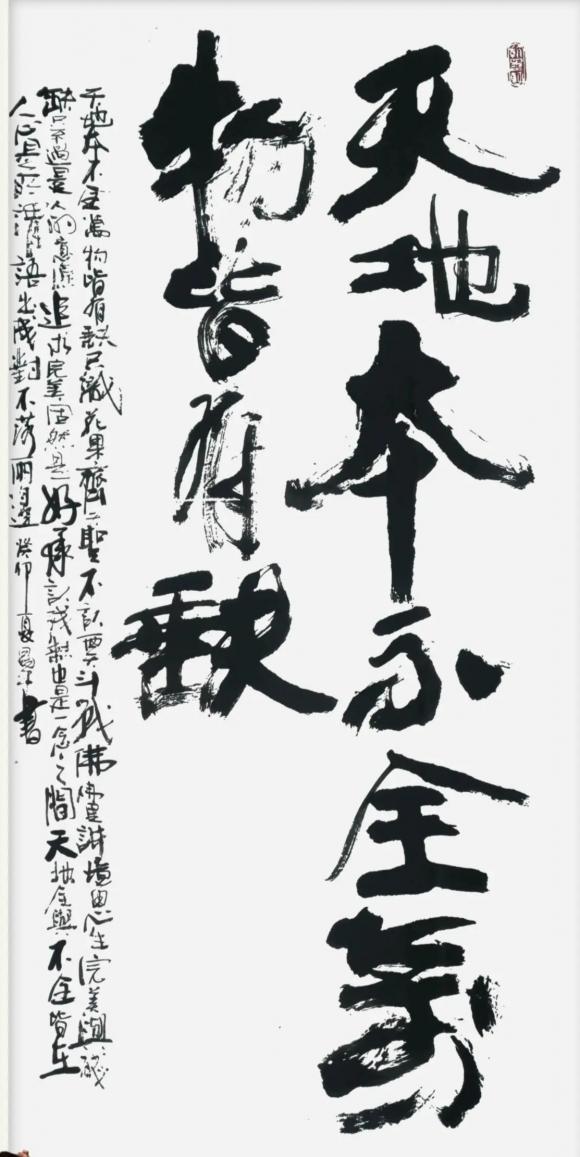 天地本不全萬
物皆有缺
天地本不全萬物皆有缺只識花果齊仁聖不認要斗戰佛佛里講境由心生完美與殘
缺只不過是人的意境追求完美固然是好承認殘缺也是一念之間天地全與不全皆在
人心是所謂語出成對不落兩邊癸卯夏書